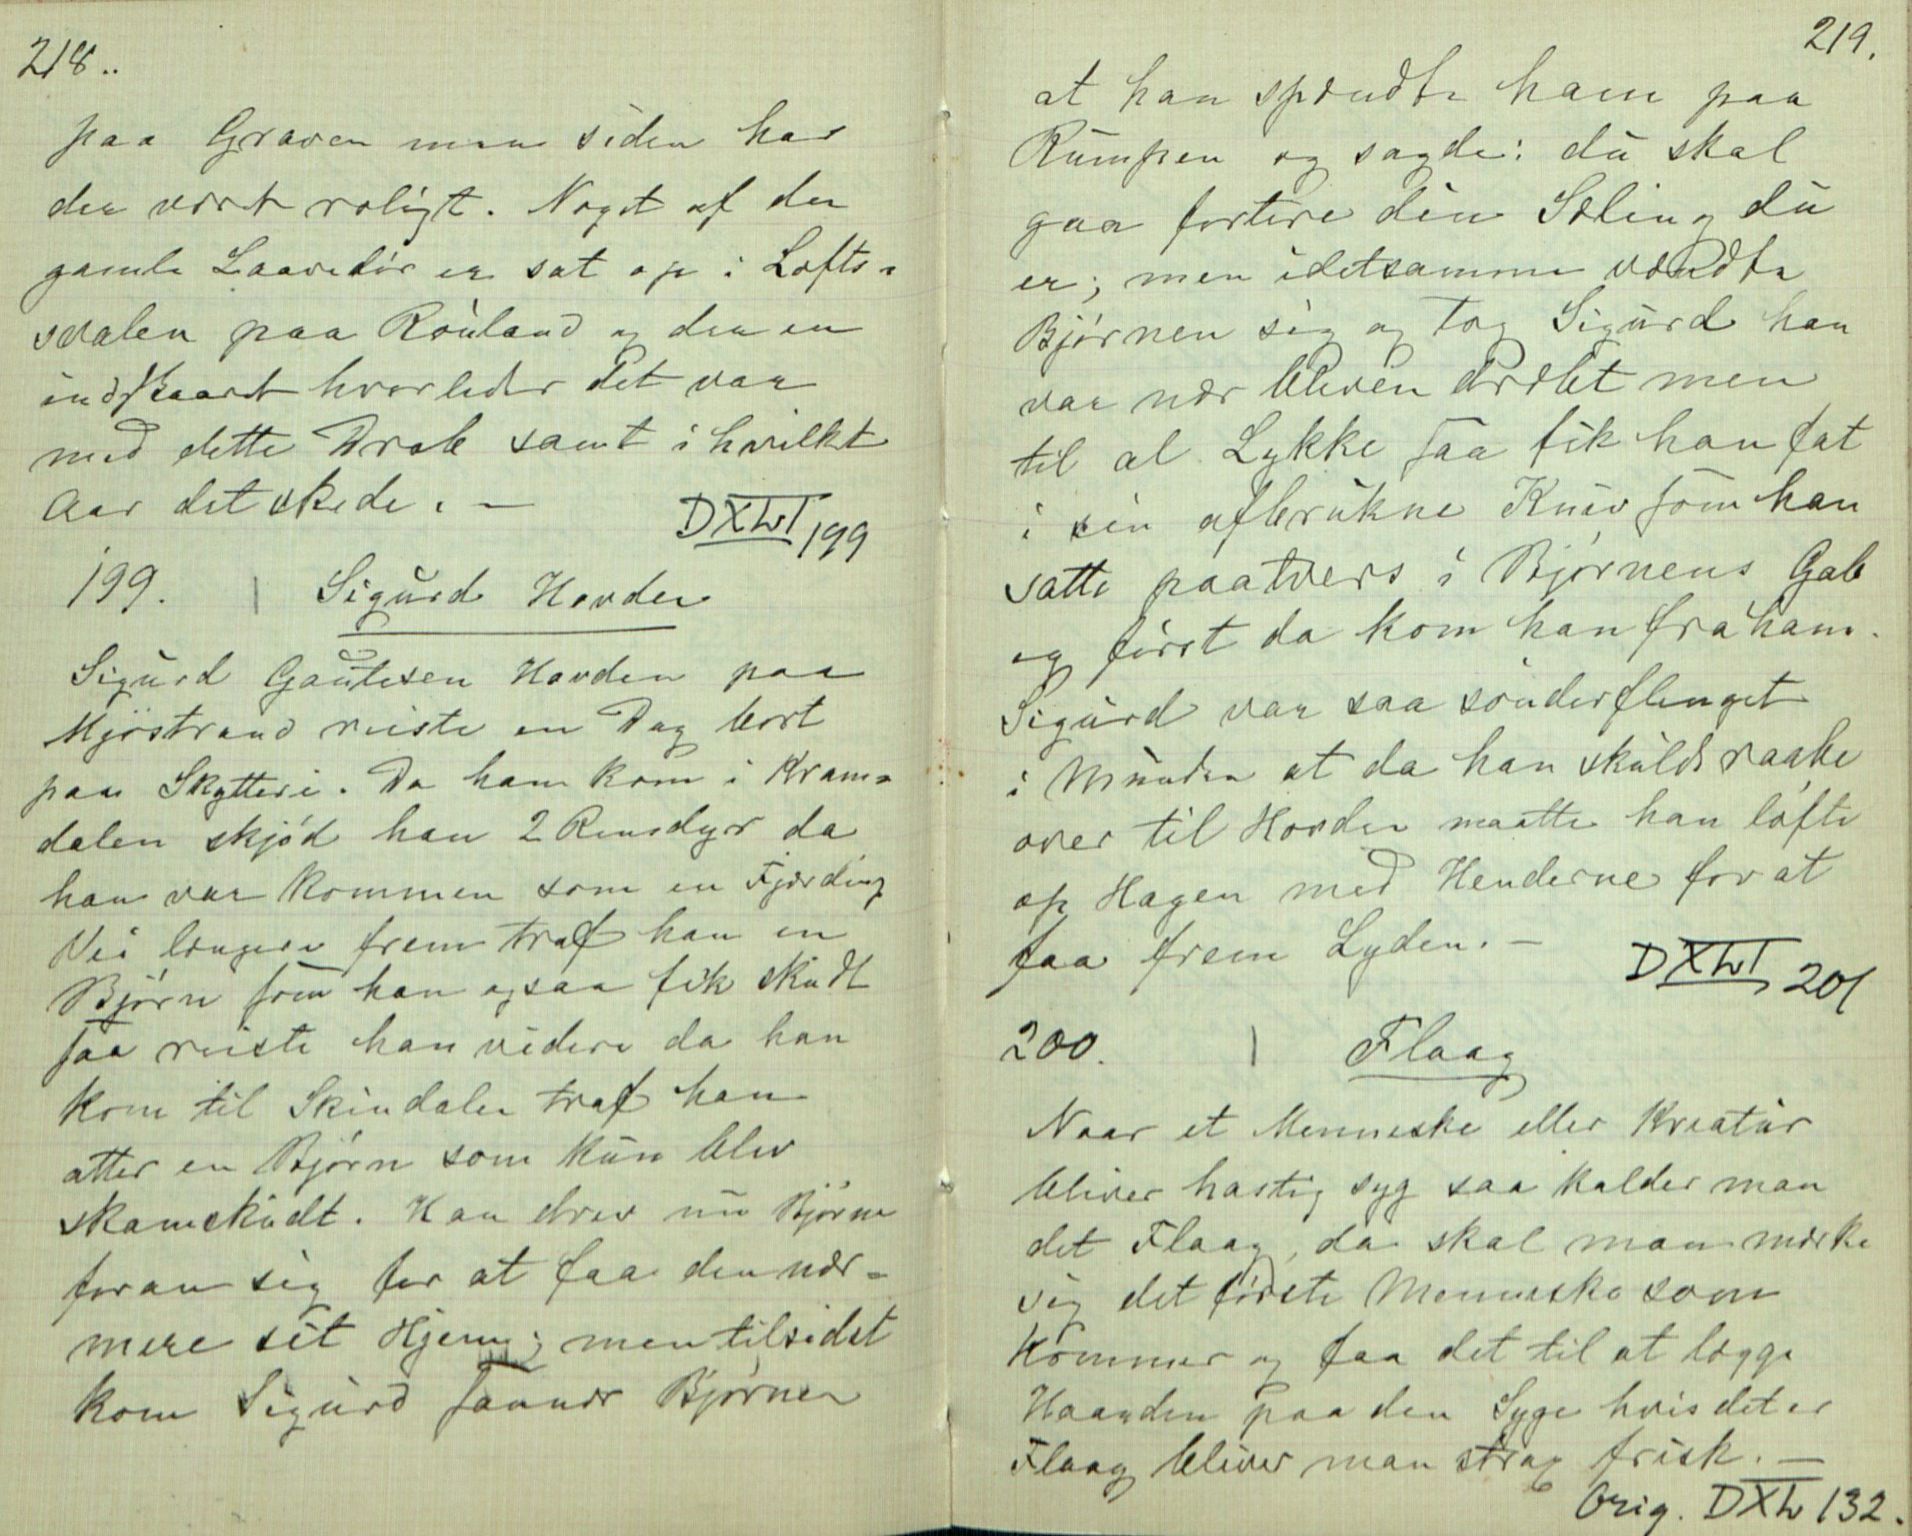 218..
paa Graven men siden har
der vært roligt. Noget af den
gamle Laavedør er sat op i Lofts-
svalen paa Róuland og der er
indskaaret hvorledes det var
med dette Drab samt i hvilket
Aar det skede. —
DXLVI 199
199. | Sigurd Hovden
Sigurd Gautesen Hovden paa
Mjøstrand reiste en Dag bort
paa Skytteri. Da han kom i Kram-
dalen skjød han 2 Rensdyr da
han var kommen som en Fjærding
Vei længere frem traf han en
Bjørn som han ogsaa fik skudt
saa reiste han videre da han
kom til Skindalen traf han
atter en Bjørn som kun blev
skamskudt. Han drev nu Bjørnen
foran sig for at faa den nær-
mere sit Hjem; men tilsidst
kom Sigurd saa nær Bjørnen
219.
at han spændte ham paa
Rumpen og sagde: du skal
gaa fortere din Søling du
er; men idetsamme vændte
Bjørnen sig og tog Sigurd han
var nær bleven dræbt men
til al Lykke saa fik han fat
i sin afbrukne Kniv som han
satte paatvers i Bjørnens Gab
og først da kom han fra ham.
Sigurd var saa sønderflenget
i Munden at da han skulde raabe
over til Hovden maatte han løfte
op Hagen med Henderne for at
faa frem Lyden. —
DXLVI 201
200. | Flaag
Naar et Menneske eller Kreatur
bliver hastig syg saa kalder man
det Flaag, da skal man mærke
sig det første Menneske som
kommer og faa det til at lægge
Haanden paa den Syge hvis det er
Flaag bliver man strax frisk. —
Orig. DXLV 132.